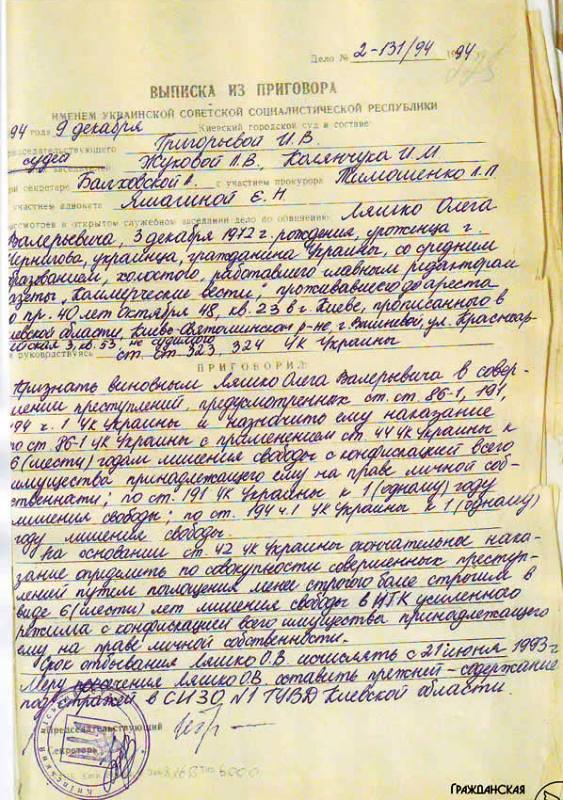 Дело № 2-131/94 1994
ВЫПИСКА ИЗ ПРИГОВОРА
ИМЕНЕМ УКРАИНСКОЙ СОВЕТСКОЙ СОЦИАЛИСТИЧЕСКОЙ РЕСПУБЛИКИ
94 года 9 декабря Киевский городской суд в составе
председательствующего Григорьевой И.В.
судей заседателей Жуковой Л.В, Калянчука И.М
при секретаре Балховской А. с участием прокурора Тимошенко Л.П
с участием адвоката Ямагиной Е.Н.
рассмотрев в открытом служебном заседании дело по обвинению Ляшко Олега
Валерьевича, 3 декабря 1972 г. рождения, уроженца г.
Чернигова, украинца, гражданина Украины, со средним
образованием, холостого, работавшего главным редактором
газеты "Коммерческие вести", проживавшего до ареста
по пр. 40 лет Октября 48, кв. 23 в г. Киеве, прописанного в
Киевской области, Киево-Святошинском р-не, г. Вишневый, ул.
3, кв. 53, не судимого
и руководствуясь ст. ст. 323, 324 УК Украины
ПРИГОВОРИЛ:
Признать виновным Ляшко Олега Валерьевича в совер-
шении преступлений, предусмотренных ст. ст. 86-1, 191,
194 ч. 1 УК Украины и назначить ему наказание
по ст. 86-1 УК Украины с применением ст. 44 УК Украины к
6 (шести) годам лишения свободы с конфискацией всего
имущества принадлежащего ему на праве личной соб-
ственнати; по ст. 191 УК Украины к 1 (одному) году
лишения свободы; по ст. 194 ч.1 УК Украины к 1 (одному)
году лишения свободы.
На основании ст. 42 УК Украины окончательное нака-
зание определить по совокупности совершенных преступ-
лений путем поглощения менее строгого более строгим в
виде 6 (шести) лет лишения свободы в ИТК усиленного
режима с конфискацией всего имущества принадлежащего
ему на праве личной собственности.
Срок отбывания Ляшко О.В. исчислять с 21 июня 1993 г.
Меру пресечения Ляшко О.В. оставить прежней - содержание
под стражей в СИЗО №1 ГУВД Киевской области.
Председательствующий
Секретарь
ГРАЖДАНСКАЯ